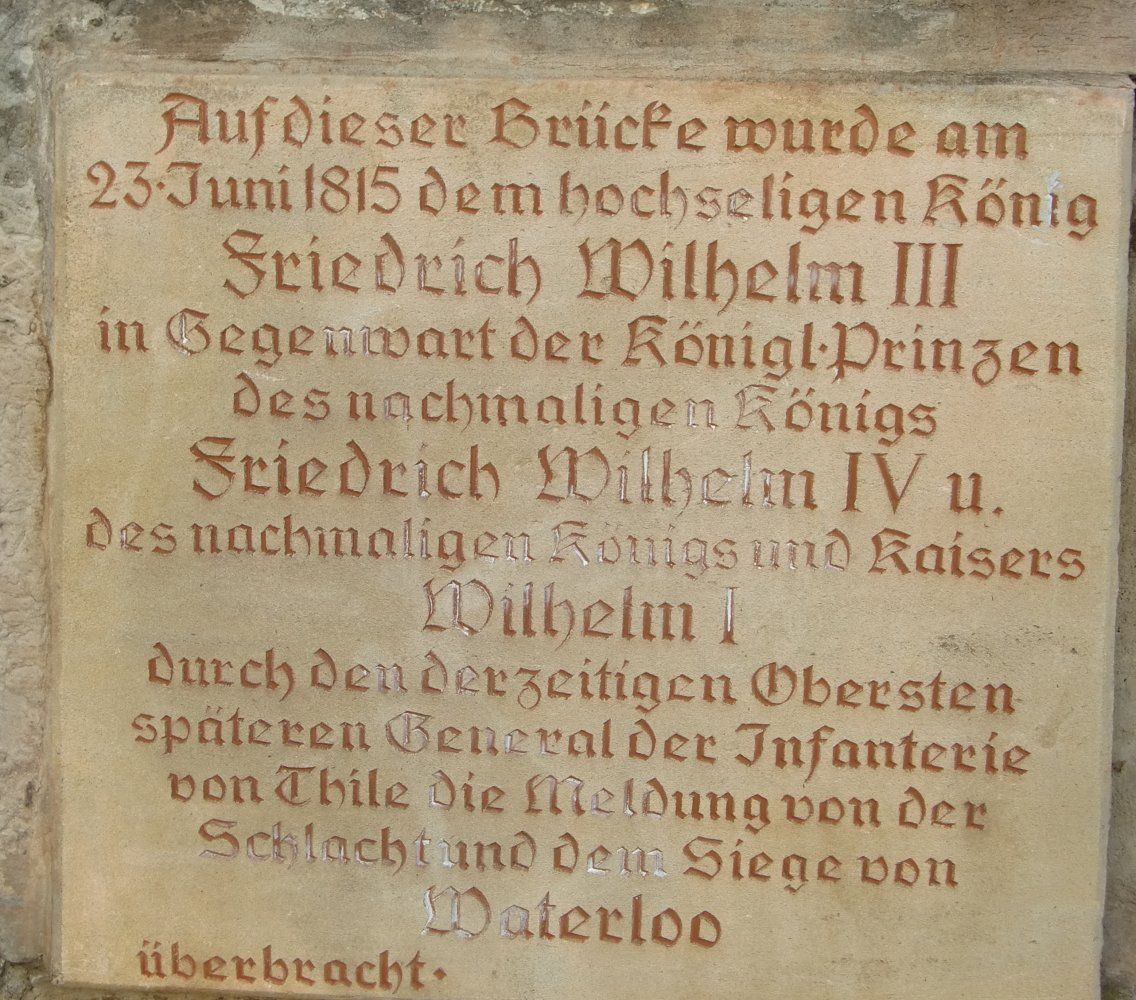 Auf dieser Brücke wurde am
23. Juni 1815 dem hochseligen König
Friedrich Wilhelm III
in Gegenwart der Königl. Prinzen
des nachmaligen Königs
Friedrich Wilhelm IV u.
des nachmaligen Königs und Kaisers
Wilhelm I
durch den derzeitigen Obersten
späteren General der Infanterie
von Thile die Meldung von der
Schlacht und dem Siege von
Waterloo
überbracht.